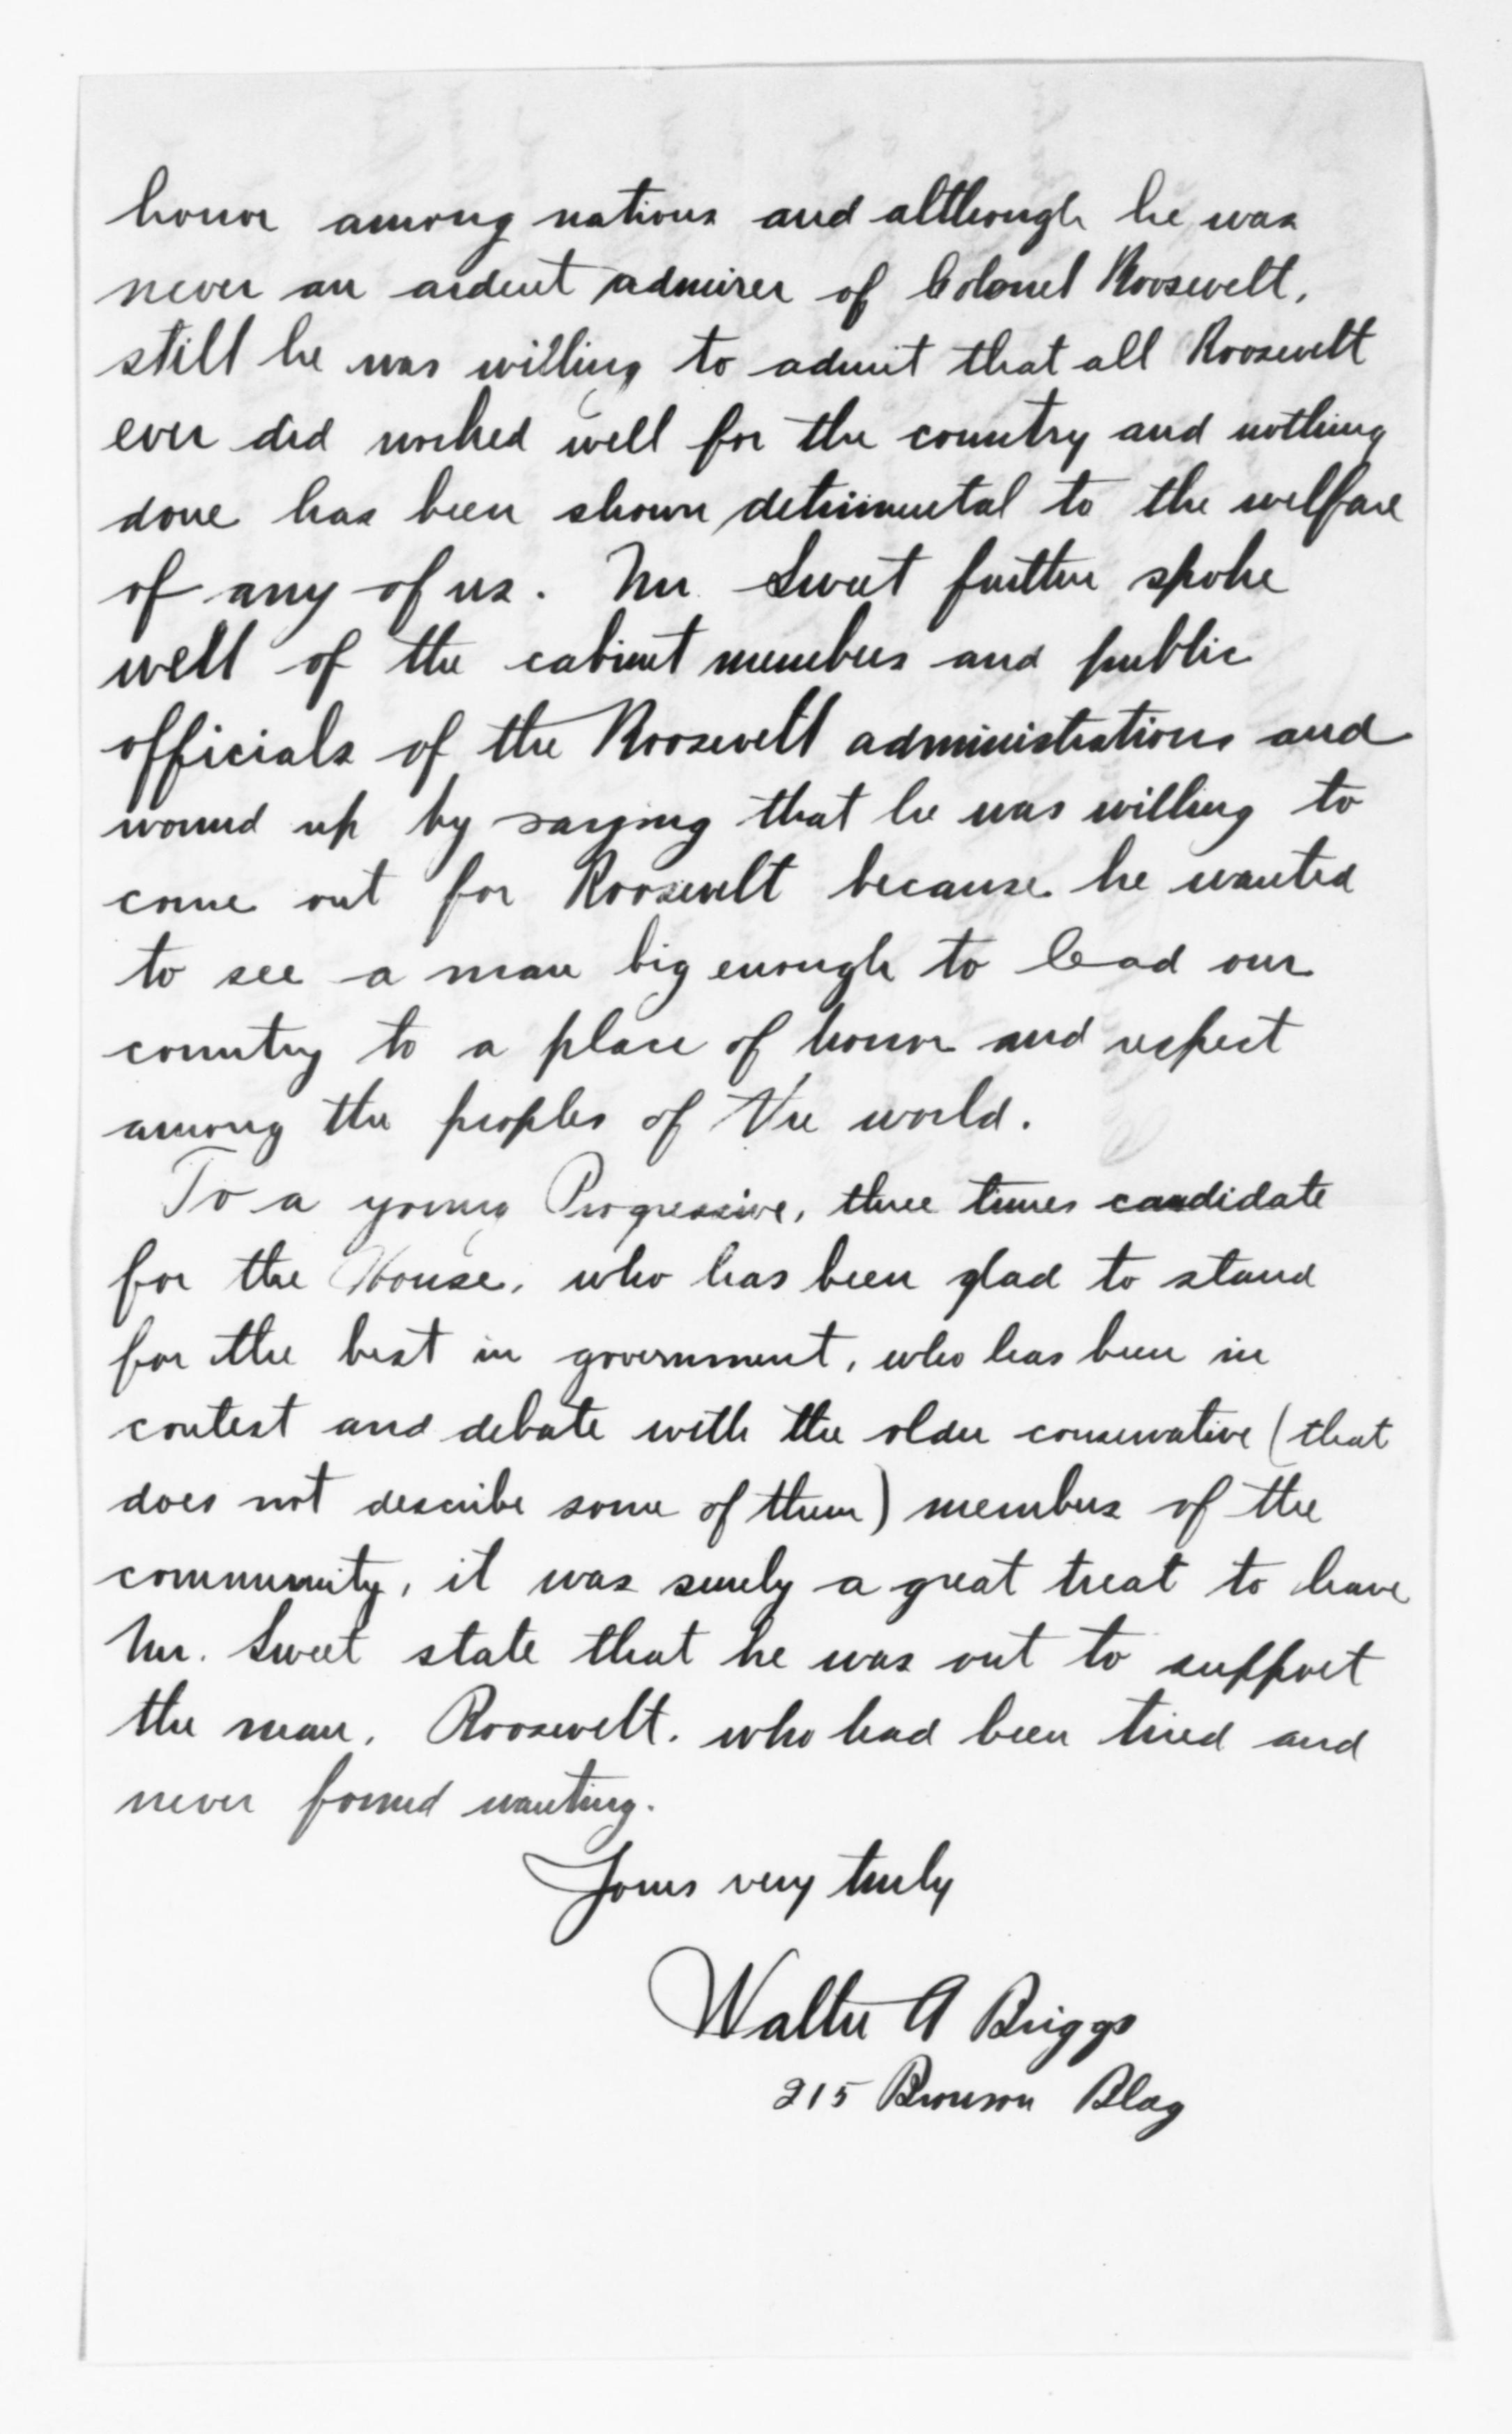 honor among nations and although he was
never an ardent admirer of Colonel Roosevelt,
still he was willing to admit that all Roosevelt
ever did worked well for the country and nothing
done has been shown detrimental to the welfare
of any of us. Mr. Sweet further spoke
well of the cabinet members and public
officials of the Roosevelt administrations and
wound up by saying that he was willing to
come out for Roosevelt because he wanted
to see a man big enough to lead our
country to a place of honor and respect
among the peoples of the world.
To a young Progressive, three times candidate
for the House, who has been glad to stand
for the best in government, who has been in
contest and debate with the older conservative (that
does not describe some of them) members of the
community, it was surely a great treat to have
Mr. Sweet state that he was out to support
the man, Roosevelt, who had been tried and
never found wanting.
Yours very truly
Walter A Briggs
215 Bronson Bldg